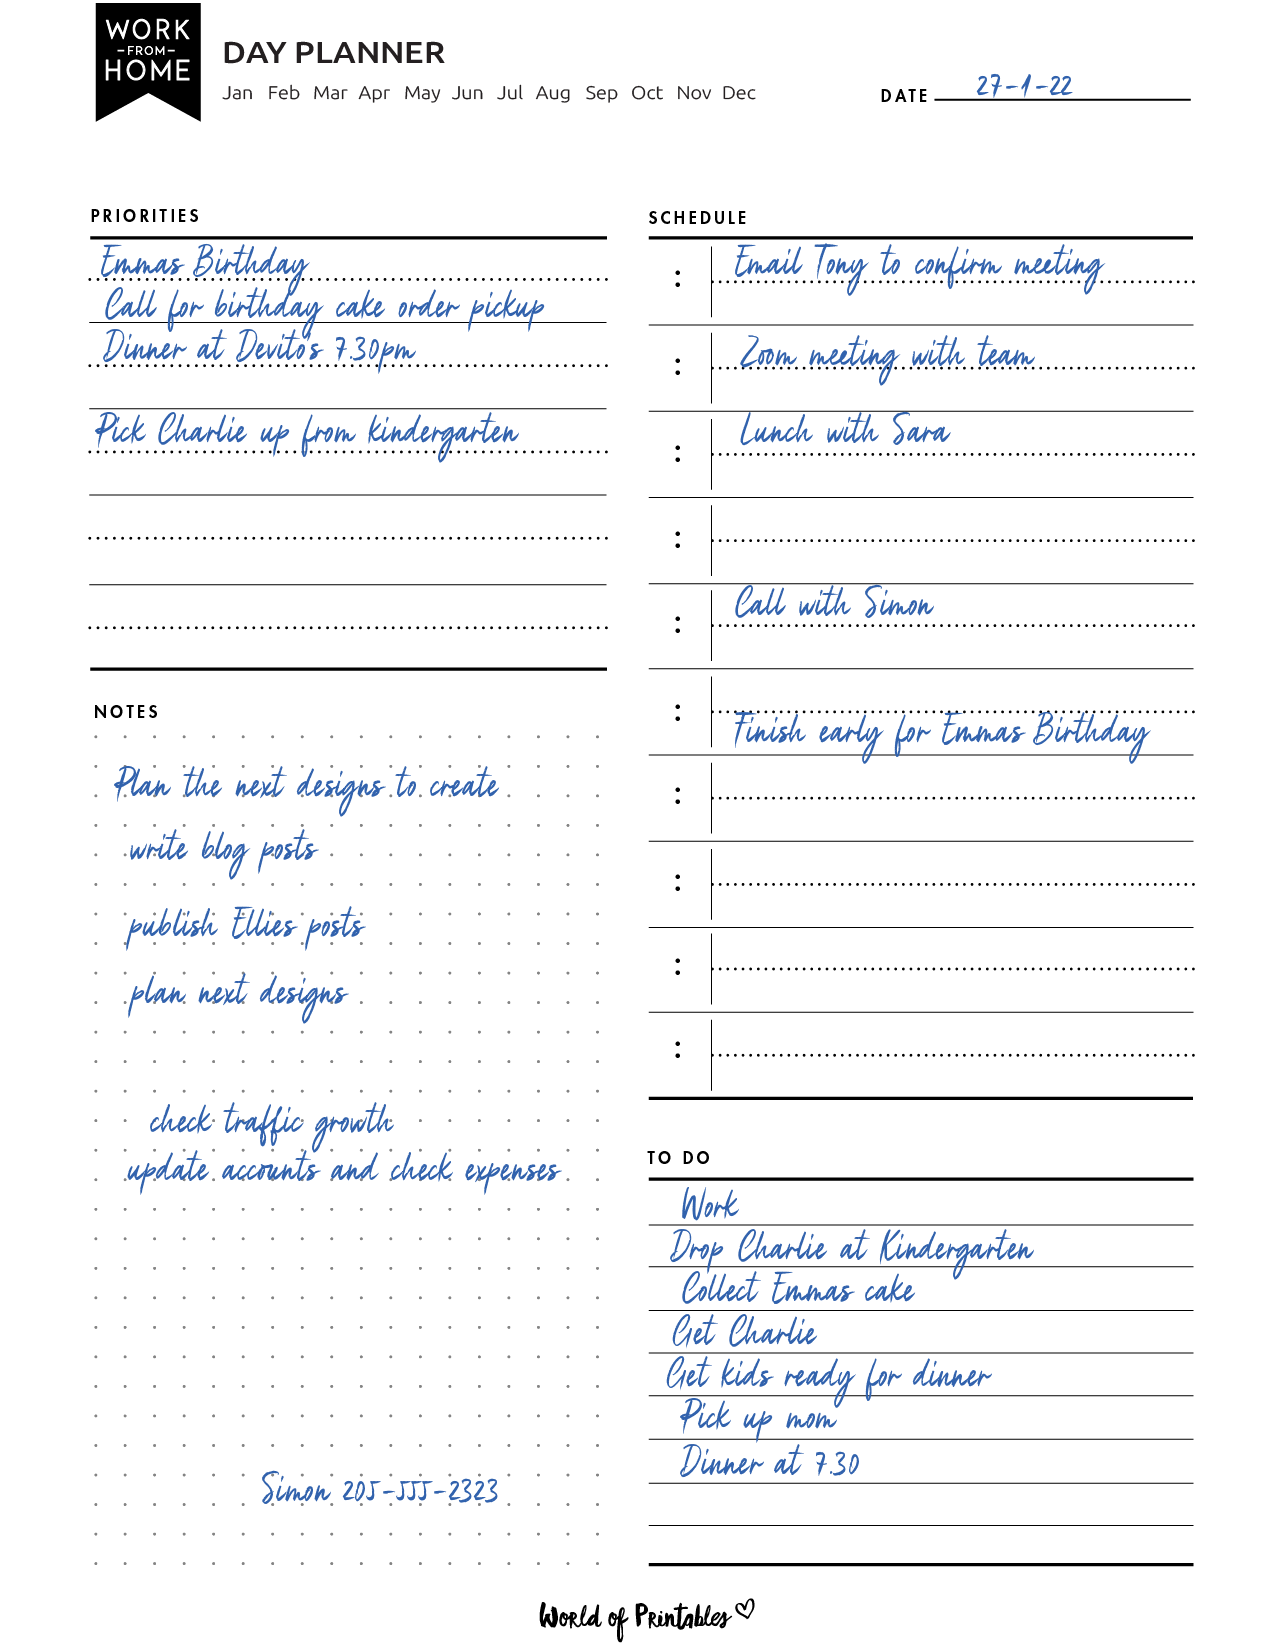 WORK
–FROM–
HOME
DAY PLANNER
Jan Feb Mar Apr May Jun Jul Aug Sep Oct Nov Dec
DATE 27-1-22
PRIORITIES
Emmas Birthday
Call for birthday cake order pickup
Dinner at Devito's 7.30pm
Pick Charlie up from kindergarten
NOTES
Plan the next designs to create
write blog posts
publish Ellies posts
plan next designs
check traffic growth
update accounts and check expenses
Simon 205-555-2323
SCHEDULE
: Email Tony to confirm meeting
: Zoom meeting with team
: Lunch with Sara
:
: Call with Simon
: Finish early for Emmas Birthday
:
:
:
:
TO DO
Work
Drop Charlie at Kindergarten
Collect Emmas cake
Get Charlie
Get kids ready for dinner
Pick up mom
Dinner at 7.30
World of Printables